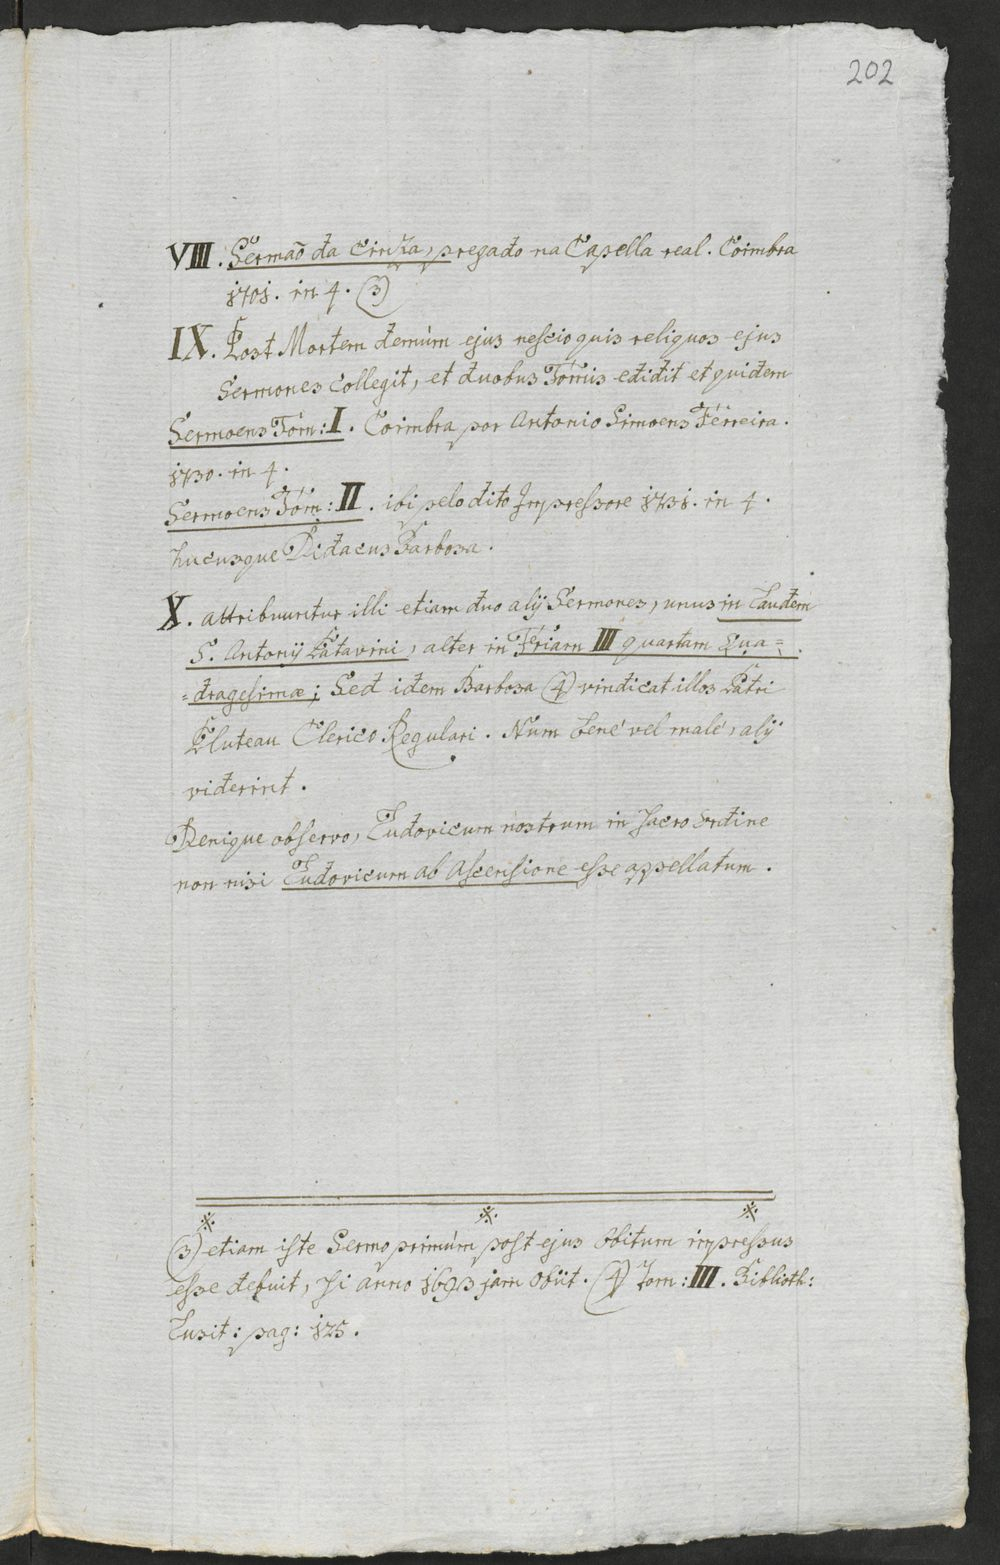 202
VIII. Sermaõ da Cinza, pregado na Capella real. Coimbra
1701. in 4. (3)
IX. Post Mortem demùm ejus nescio quis reliquos ejus
Sermones collegit, et duobus Tomis edidit et quidem
Sermoens Tom: I. Coimbra por Antonio Simoens Ferreira.
1730. in 4.
Sermoens Tom: II. ibi pelo dito Impressore 1731. in 4.
hucusque Didacus Barbosa.
X. attribuuntur illi etiam duo alij Sermones, unus in Laudem
S. Antonij Patavini, alter in Feriam III quartam Qua=
=dragesimæ; Sed idem Barbosa (4) vindicat illos Patri
Pluteau Clerico Regulari. Num bené vel malé, alij
viderint.
Denique observo, Ludovicum nostrum in Sacro Ordine
non nisi Ludovicum ab Ascensione esse appellatum.
(3) etiam iste Sermo primùm post ejus Obitum impressus
esse debuit, si anno 1693 jam Obiit. (4) Tom: III. Biblioth:
Lusit: pag: 125.